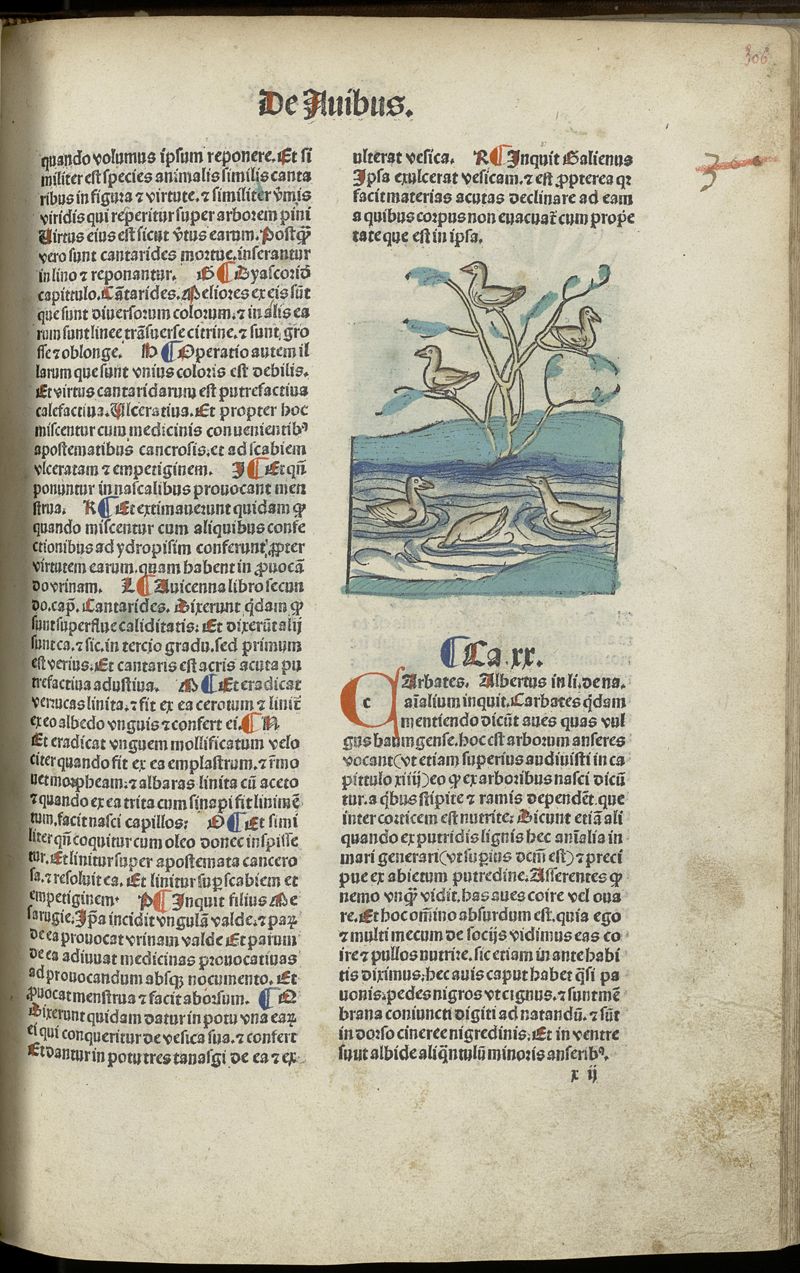 306
De Auibus.
300
quando volumus ipsum reponere. Et si
militer est species animalis similis canta
ribus in figura ⁊ virtute. ⁊ similiter v̄mis
viridis qui reperitur super arborem pini
Uirtus eius est sicut v̄tus earum. Postq̄
vero sunt cantarides mortue. inserantur
in lino ⁊ reponantur. G ¶ Dyascorid̄
capittulo. Cātarides. Meliores ex eis sūt
que sunt diuersorum colorum. ⁊ in alis ea
rum sunt linee trāsuerse citrine. ⁊ sunt gro
sse ⁊ oblonge. H ¶ Operatio autem il
larum que sunt vnius coloris est debilis.
Et virtus cantaridarum est putrefactiua
calefactiua. Ulceratiua. Et propter hoc
miscentur cum medicinis conuenientibꝰ
apostematibus cancrosis. et ad scabiem
vlceratam ⁊ empetiginem. I ¶ Et qn̄
ponuntur in nascalibus prouocant men
strua. K ¶ Et extimauerunt quidam ꝙ
quando miscentur cum aliquibus confe
ctionibus ad ydropisim conferunt. ꝓpter
virtutem earum. quam habent in ꝓuocā
do vrinam. L ¶ Auicenna libro secun
do. cap̄. Cantarides. Dixerunt q̄dam ꝙ
sunt superflue caliditatis: Et dixerūt alij
sunt ca. ⁊ sic. in tercio gradu. sed primum
est verius: Et cantaris est acris acuta pu
trefactiua adustiua. M ¶ Et eradicat
verrucas linita. ⁊ fit ex ea cerotum ⁊ linit̄
ex eo albedo vnguis ⁊ confert ei. ¶ N
Et eradicat vnguem mollificatum velo
citer quando fit ex ea emplastrum. ⁊ r̄mo
uet morpheam: ⁊ albaras linita cū aceto
⁊ quando ex ea trita cum sinapi fit linimē
tum, facit nasci capillos: O ¶ Et simi
liter qn̄ coquitur cum oleo donec inspisse
tur. Et linitur super apostemata cancero
sa. ⁊ resoluit ea. Et linitur suꝑ scabiem et
empetiginem. P ¶ Inquit filius Me
sarugie: Ip̄a incidit vngulā valde. ⁊ paꝝ
de ea prouocat vrinam valde Et parum
de ea adiuuat medicinas prouocatiuas
ad prouocandum absqꝫ nocumento. Et
ꝓuocat menstrua ⁊ facit aborsum. ¶ Q
Dixerunt quidam datur in potu vna eaꝝ
ei qui conqueritur de vesica sua. ⁊ confert
Et dantur in potu tres tanasgi de ea ⁊ ex
ulterat vesica. R ¶ Inquit Galienus
Ipsa exulcerat vesicam. ⁊ est ꝓpterea qꝛ
facit materias acutas declinare ad eam
a quibus corpus non euacuat̄ cum propē
tate que est in ipsa.
¶ Ca. xx.
CArbates. Albertus in li. de na.
aīalium inquit. Carbates q̄dam
mentiendo dicūt aues quas vul
gus baumgense. hoc est arborum anseres
vocant (vt etiam superius audiuisti in ca
pittulo xiiij) eo ꝙ ex arboribus nasci dicū
tur. a q̄bus stipite ⁊ ramis dependēt. que
inter corticem est nutrite: Dicunt etiā ali
quando ex putridis lignis hec aīalia in
mari generari (vt suꝑius dcm̄ est) ⁊ preci
pue ex abietum putredine. Asserentes ꝙ
nemo vnq̄ vidit. has aues coire vel oua
re. Et hoc om̄ino absurdum est. quia ego
⁊ multi mecum de socijs vidimus eas co
ire ⁊ pullos nutrire. sic etiam in ante habi
tis diximus: hec auis caput habet q̄si pa
uonis: pedes nigros vt cignus. ⁊ sunt mē
brana coniuncti digiti ad natandū. ⁊ sūt
in dorso cineree nigredinis: Et in ventre
sunt albide aliq̄ntulū minoris anseribꝰ.
x ij